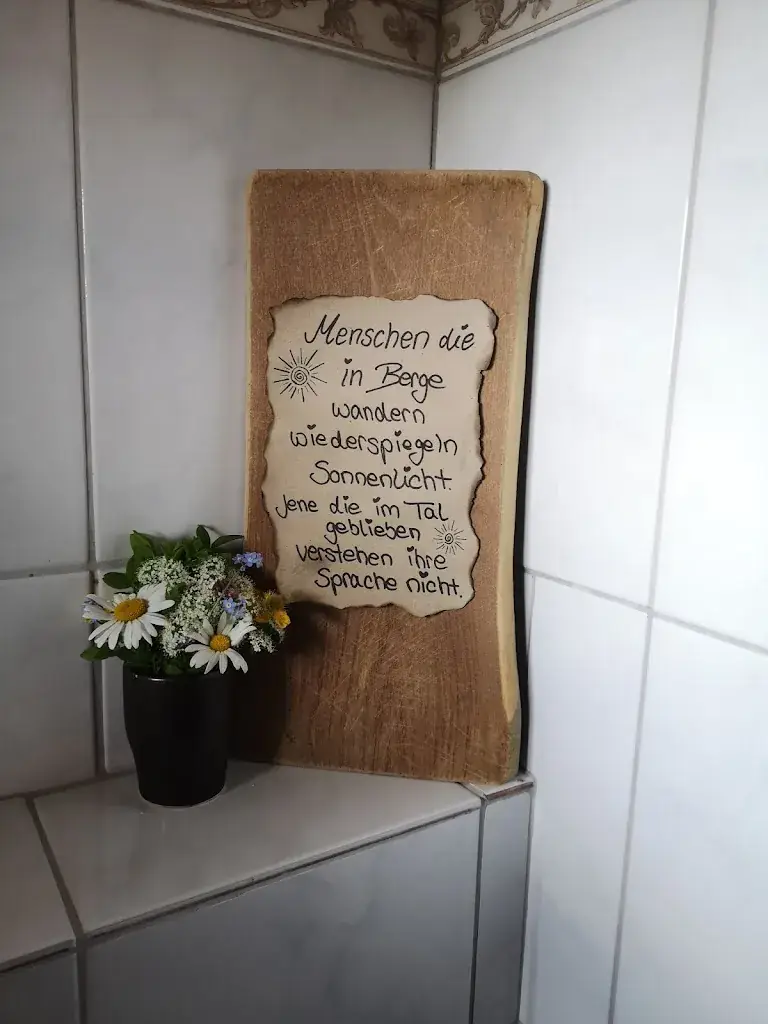 Menschen die
in Berge
wandern
wiederspiegeln
Sonnenlicht.
Jene die im Tal
geblieben
verstehen ihre
Sprache nicht.